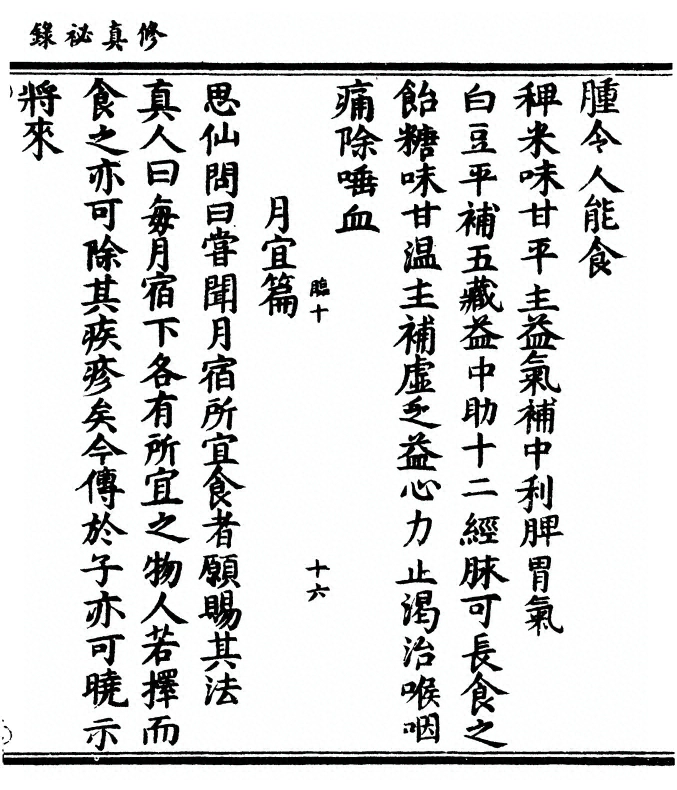 修真祕錄
腫令人能食
稗米味甘平主益氣補中利脾胃氣
白豆平補五藏益中助十二經脉可長食之
飴糖味甘温主補虛乏益心力止渴治喉咽
痛除唾血
臨十
十六
月宜篇
思仙問曰嘗聞月宿所宜食者願賜其法
真人曰每月宿下各有所宜之物人若擇而
食之亦可除其疾疹矣今傳於子亦可曉示
將來